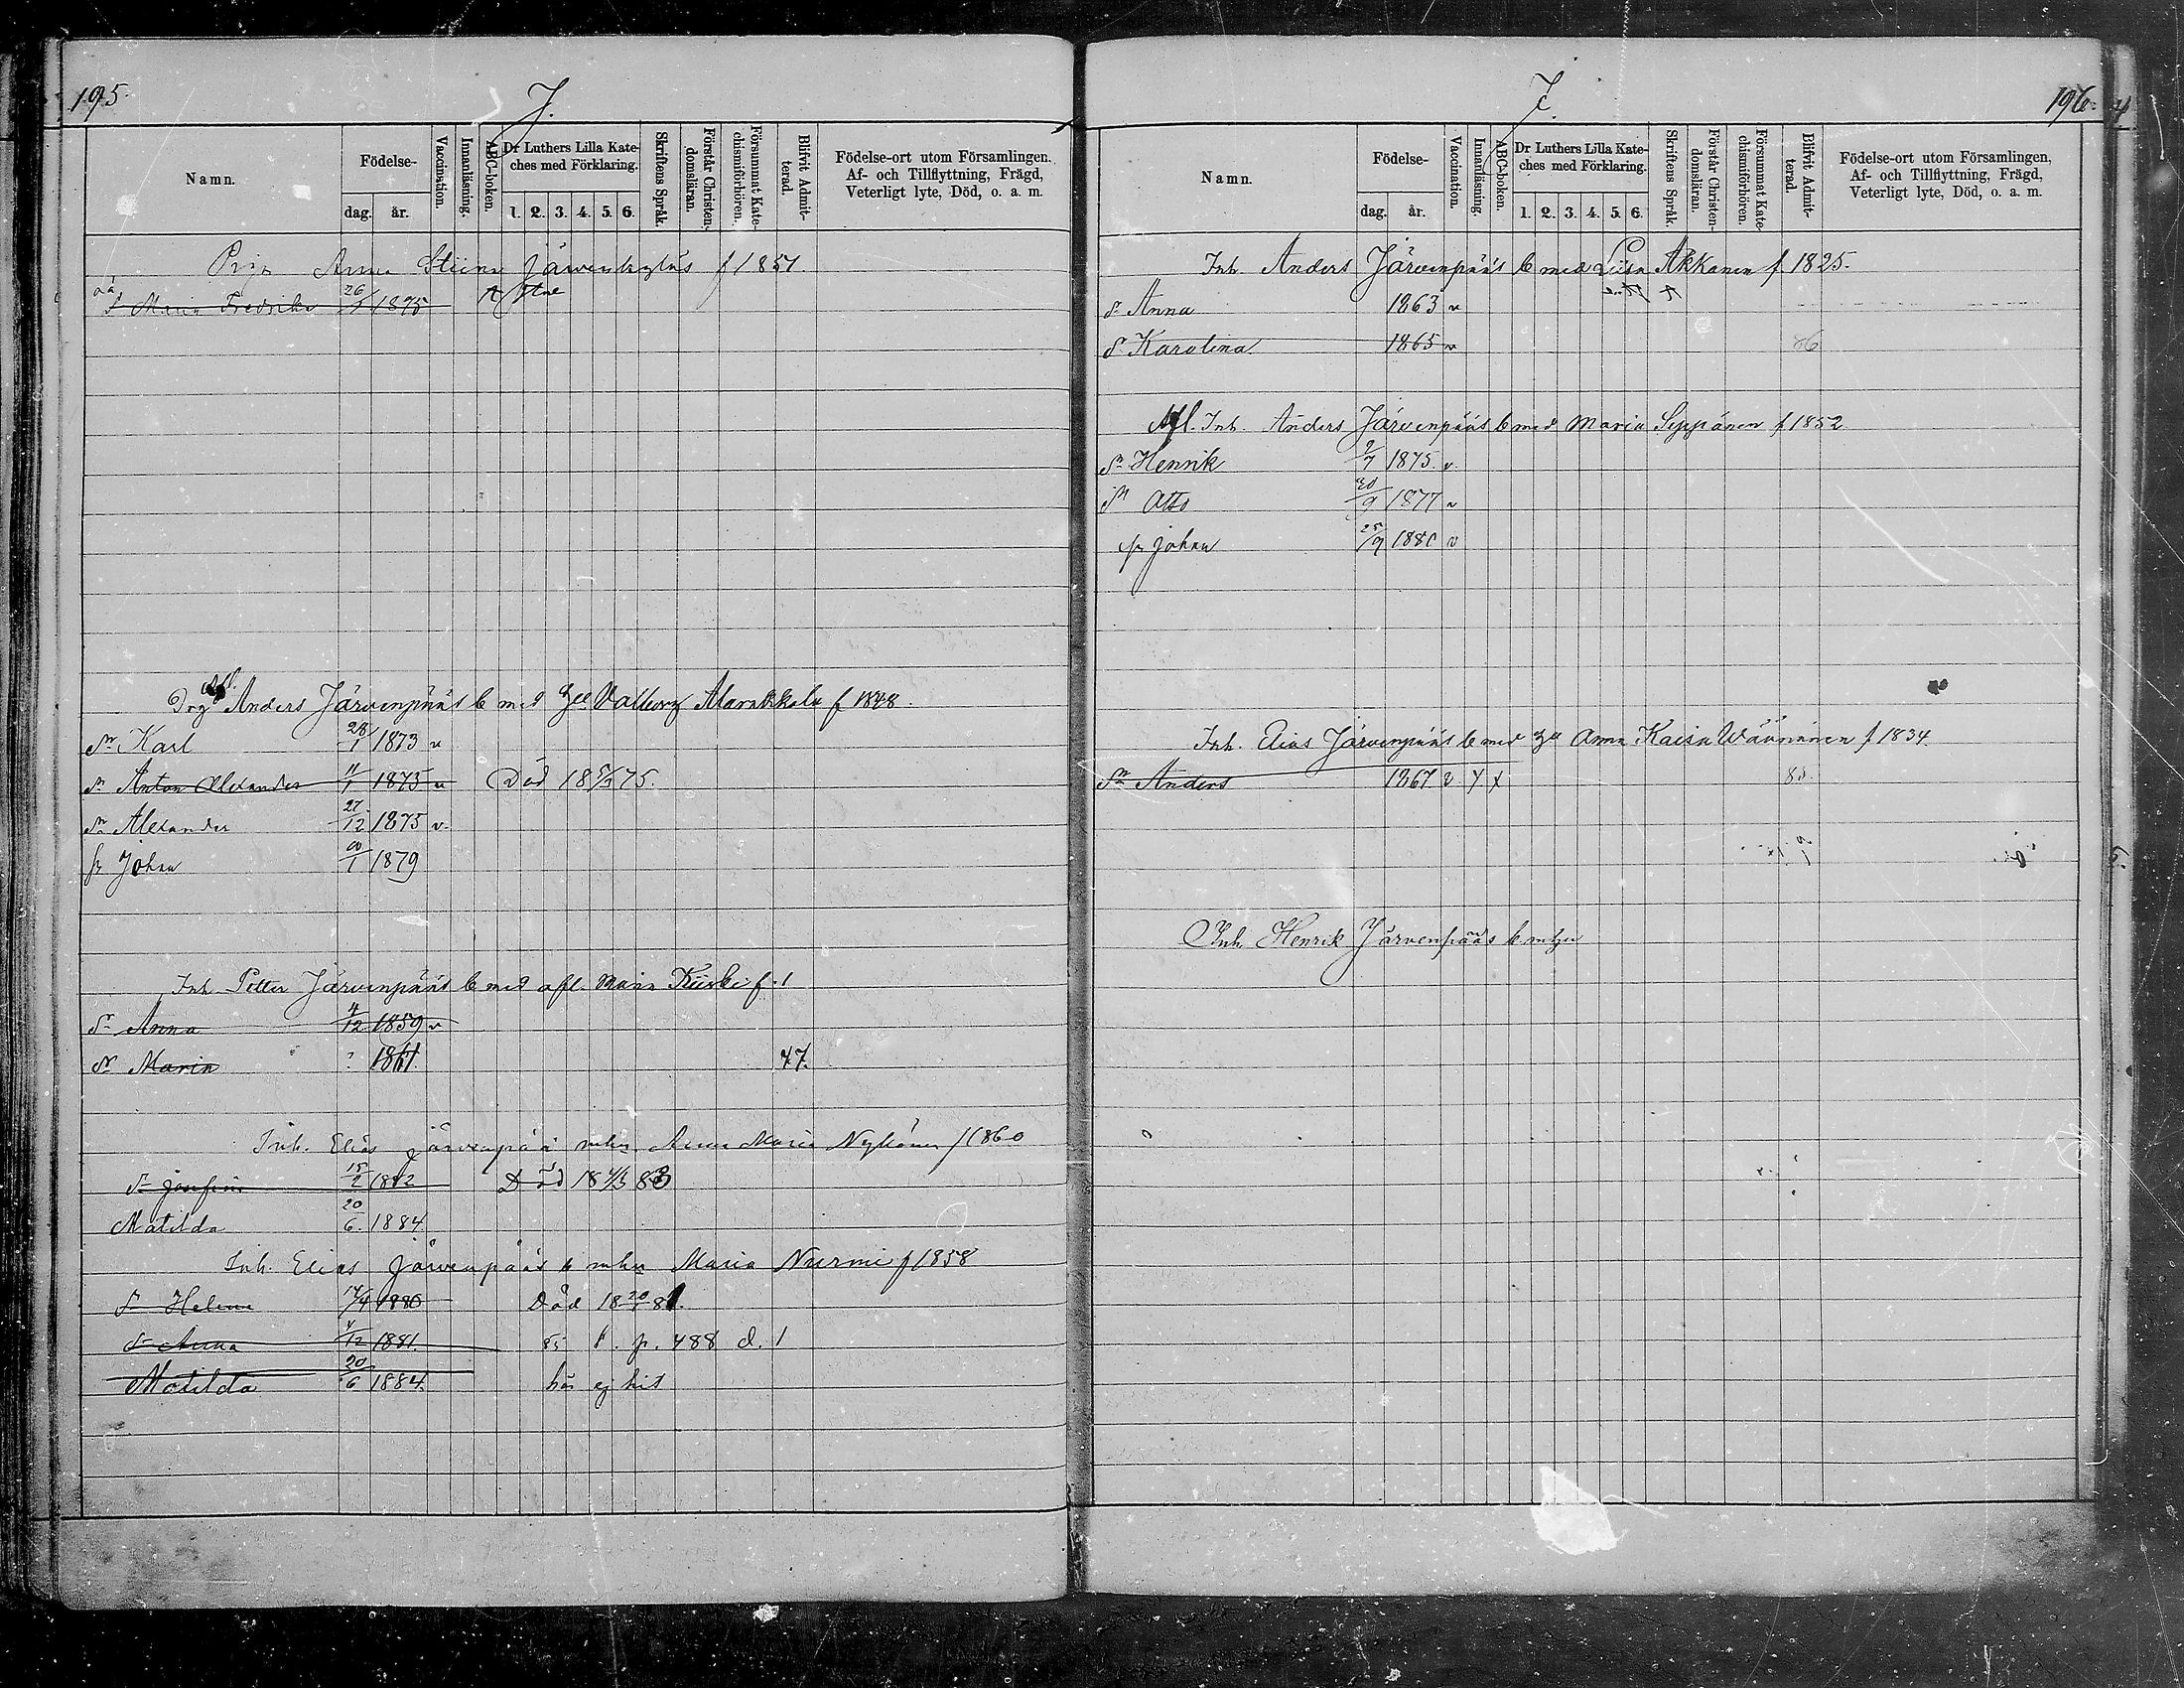 195.
J.
Namn.
Födelse-
dag.
år.
Vaccination.
Innanläsning.
ABC-boken.
Dr Luthers Lilla Kate-
ches med Förklaring.
1. 2. 3. 4. 5. 6.
Skriftens Språk.
Förstår Christen-
domsläran.
Försummat Kate-
chismiförhören.
Blifvit Admit-
terad.
Födelse-ort utom Församlingen.
Af- och Tillflyttning, Frägd,
Veterligt lyte, Död, o. a. m.
Pig. Anna Stiina f 1851.
oä
Maria Fredrika 26/1 1875
Afl.
Drg Anders Järvenpääs b med Valborg f 1848.
Sn Karl 28/1 1873 v
Sn Anton Alexander 11/1 1875 v Död 18 5/3 75.
Sn Alexander 27/12 1875 v.
Johan 1 1879
Inh. Petter Järvenpääs b med afl. Maria Kiiski f. 1
Dr Anna 4/12 1859 v
Dr Maria 1861. 77.
Inh. Elias Järvenpää mhu Anna Maria Nykänen f 1860
Josefina 15/2 1882 Död 18 4/3 83
Matilda 20/6 1884.
Inh. Elias Järvenpääs b mhu Maria Nurmi f 1858
Dr Helena 14/4 1880 Död 18 20/1 81.
Dr Anna 4/12 1881. p. 488 d. 1
Matilda 20/6 1884. hör ej hit
J.
196.
Namn.
Födelse-
dag.
år.
Vaccination.
Innanläsning.
ABC-boken.
Dr Luthers Lilla Kate-
ches med Förklaring.
1. 2. 3. 4. 5. 6.
Skriftens Språk.
Förstår Christen-
domsläran.
Försummat Kate-
chismiförhören.
Blifvit Admit-
terad.
Födelse-ort utom Församlingen,
Af- och Tillflyttning, Frägd,
Veterligt lyte, Död, o. a. m.
Inh. Anders Järvenpääs b med Liisa Akkanen f. 1825.
Dr Anna 1863 v
Dr Karolina 1865 v 86
Afl. Inh. Anders Järvenpääs b med Maria Seppänen f 1852
Sn Henrik 2/7 1875. v.
Sn Otto 30/9 1877 v
Johan 25/9 1880 v
Inh. Elias Järvenpääs b med Anna Kaisa Väänänen f 1834.
Sn Anders 1867. v 85.
Inh. Henrik Järvenpääs b